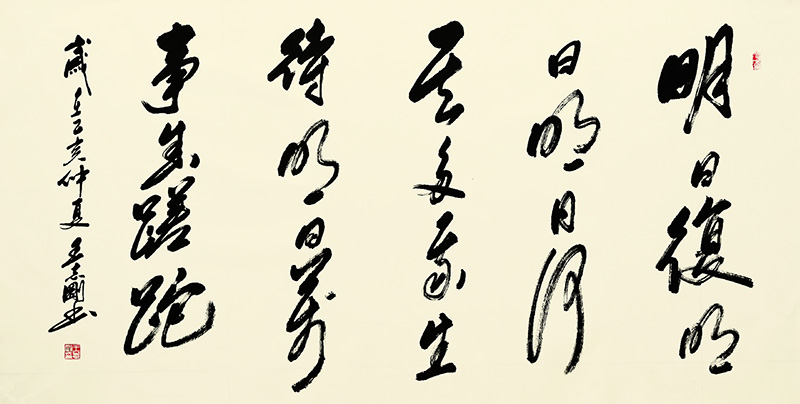 明日復明
日明日何
其多我生
待明日萬
事成蹉跎
歲在己亥仲夏 王志剛書